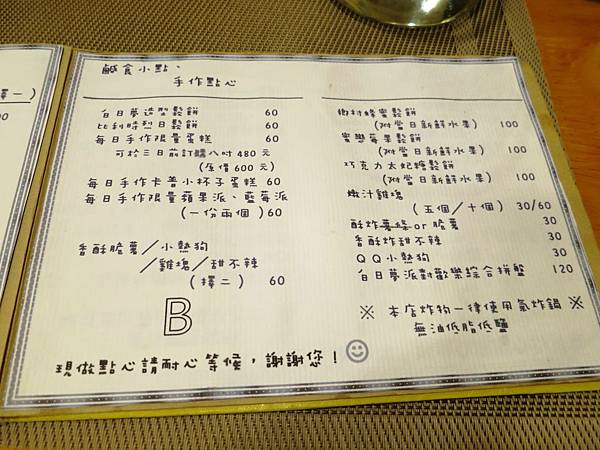 擇一)
00
鹹食小點、
手作點心
白日夢造型鬆餅 60
比利時烈日鬆餅 60
每日手作限量蛋糕 60
可於三日前訂購八吋 480 元
(原價 600 元)
每日手作卡普小杯子蛋糕 60
每日手作限量蘋果派、藍莓派
(一份兩個) 60
香酥脆薯/小熱狗
/雞塊/甜不辣
(擇二) 60
B
鄉村蜂蜜鬆餅
(附當日新鮮水果) 100
蜜戀莓果鬆餅
(附當日新鮮水果) 100
巧克力太妃糖鬆餅
(附當日新鮮水果) 100
嫩汁雞塊
(五個/十個) 30/60
酥炸薯條or脆薯 30
香酥炸甜不辣 30
QQ小熱狗 30
白日夢派對歡樂綜合拼盤 120
※ 本店炸物一律使用氣炸鍋 ※
無油低脂低鹽
現做點心請耐心等候，謝謝您！